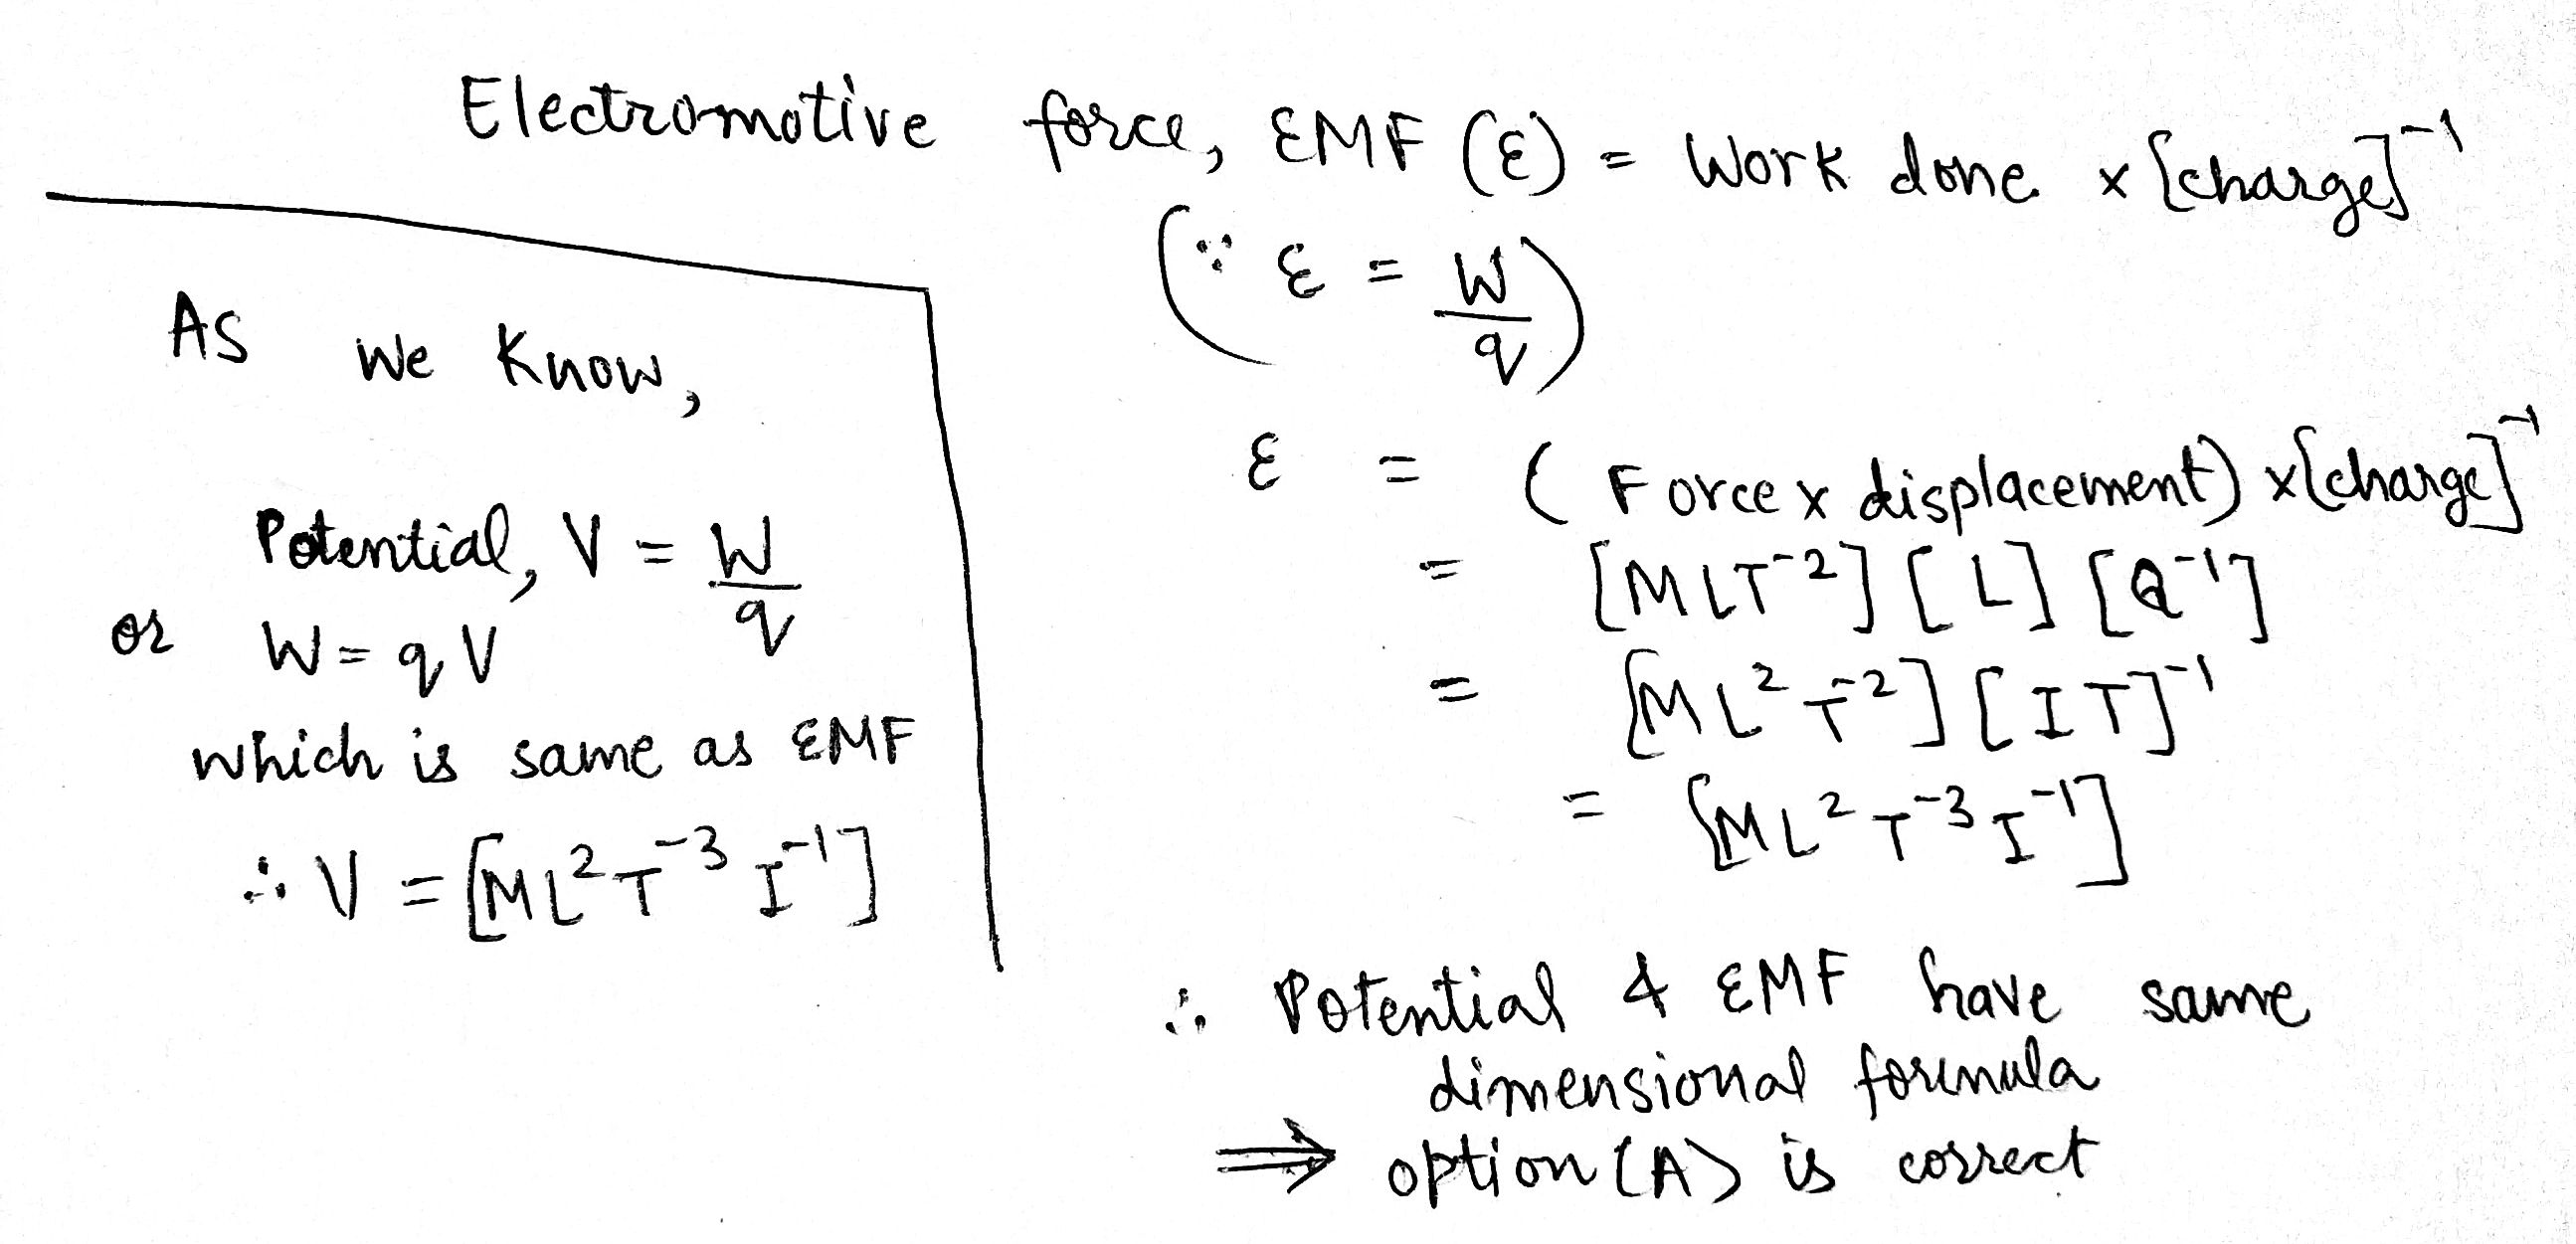 Electromotive force, EMF (ε) = Work done × [charge]⁻¹
(∵ ε = W/q)
ε = (Force × displacement) × [charge]⁻¹
= [MLT⁻²] [L] [Q⁻¹]
= [ML²T⁻²] [IT]⁻¹
= [ML²T⁻³I⁻¹]
As we know,
Potential, V = W/q
or W = qV
which is same as EMF
∴ V = [ML²T⁻³I⁻¹]
∴ Potential & EMF have same
dimensional formula
⇒ option (A) is correct